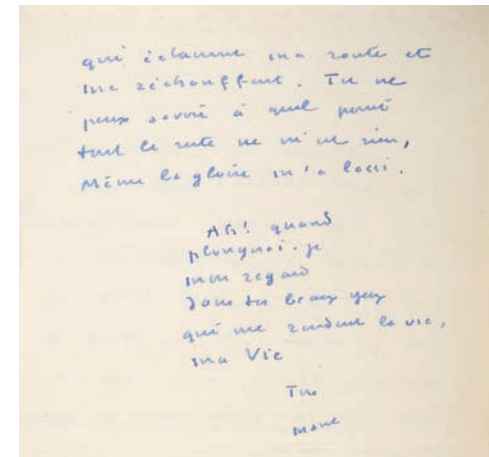 qui éclairent ma route et
me réchauffent. Tu ne
peux savoir à quel point
tout le reste ne m'est rien,
Même la gloire m'a lassé.
Ah! quand
plongerai-je
mon regard
dans tes beaux yeux
qui me rendent la vie,
ma Vie
Ton